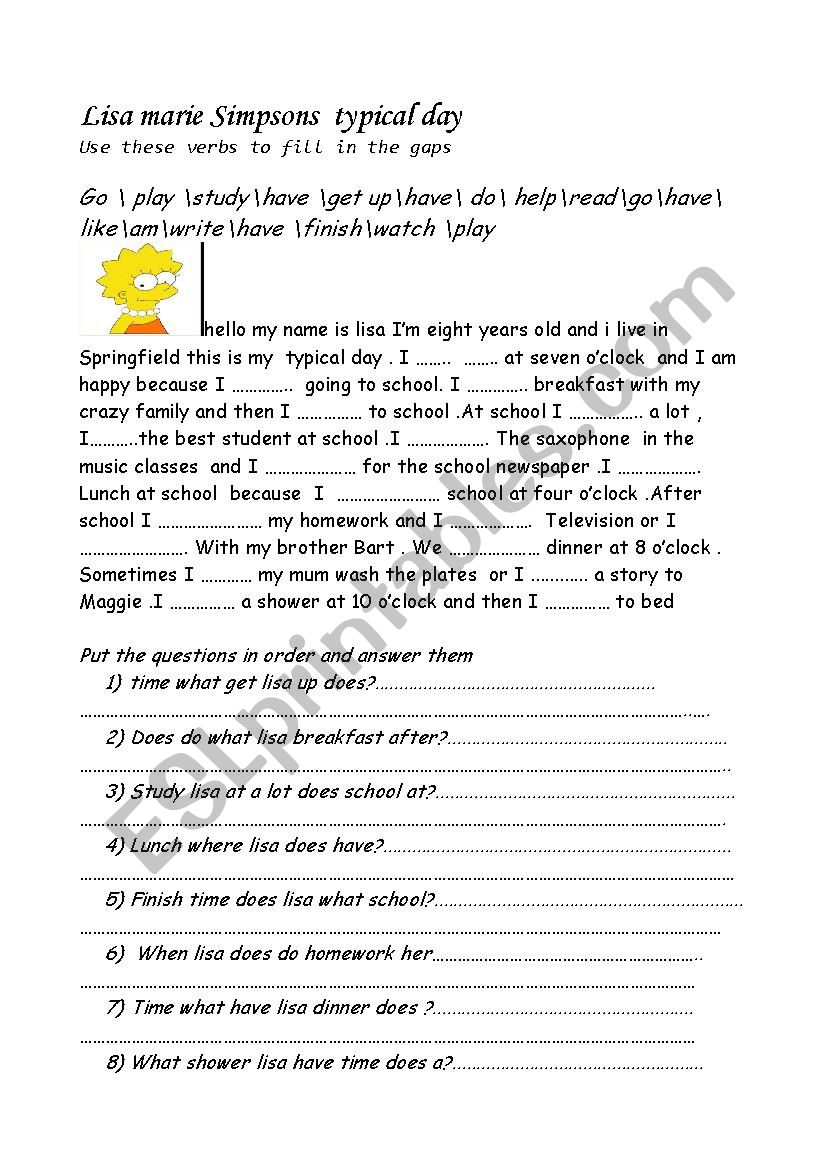 Lisa marie Simpsons typical day
Use these verbs to fill in the gaps
Go \ play \study\have \get up\have\ do\ help\read\go\have\
like\am\write\have \finish\watch \play
hello my name is lisa I'm eight years old and i live in
Springfield this is my typical day . I …….. …….. at seven o'clock and I am
happy because I ………….. going to school. I ………….. breakfast with my
crazy family and then I …………… to school .At school I …………….. a lot ,
I………..the best student at school .I ………………. The saxophone in the
music classes and I ………………… for the school newspaper .I ……………….
Lunch at school because I …………………… school at four o'clock .After
school I …………………… my homework and I ………………. Television or I
……………………. With my brother Bart . We ………………… dinner at 8 o'clock .
Sometimes I ………… my mum wash the plates or I ............ a story to
Maggie .I …………… a shower at 10 o'clock and then I …………… to bed
Put the questions in order and answer them
1) time what get lisa up does?..........................................................
……………………………………………………………………………………………………………………………..….
2) Does do what lisa breakfast after?..........................................................
……………………………………………………………………………………………………………………………………..
3) Study lisa at a lot does school at?..............................................................
…………………………………………………………………………………………………………………………………….
4) Lunch where lisa does have?........................................................................
………………………………………………………………………………………………………………………………………
5) Finish time does lisa what school?................................................................
……………………………………………………………………………………………………………………………………
6) When lisa does do homework her……………………………………………………..
………………………………………………………………………………………………………………………………
7) Time what have lisa dinner does ?......................................................
………………………………………………………………………………………………………………………………
8) What shower lisa have time does a?....................................................
ESLprintables.com